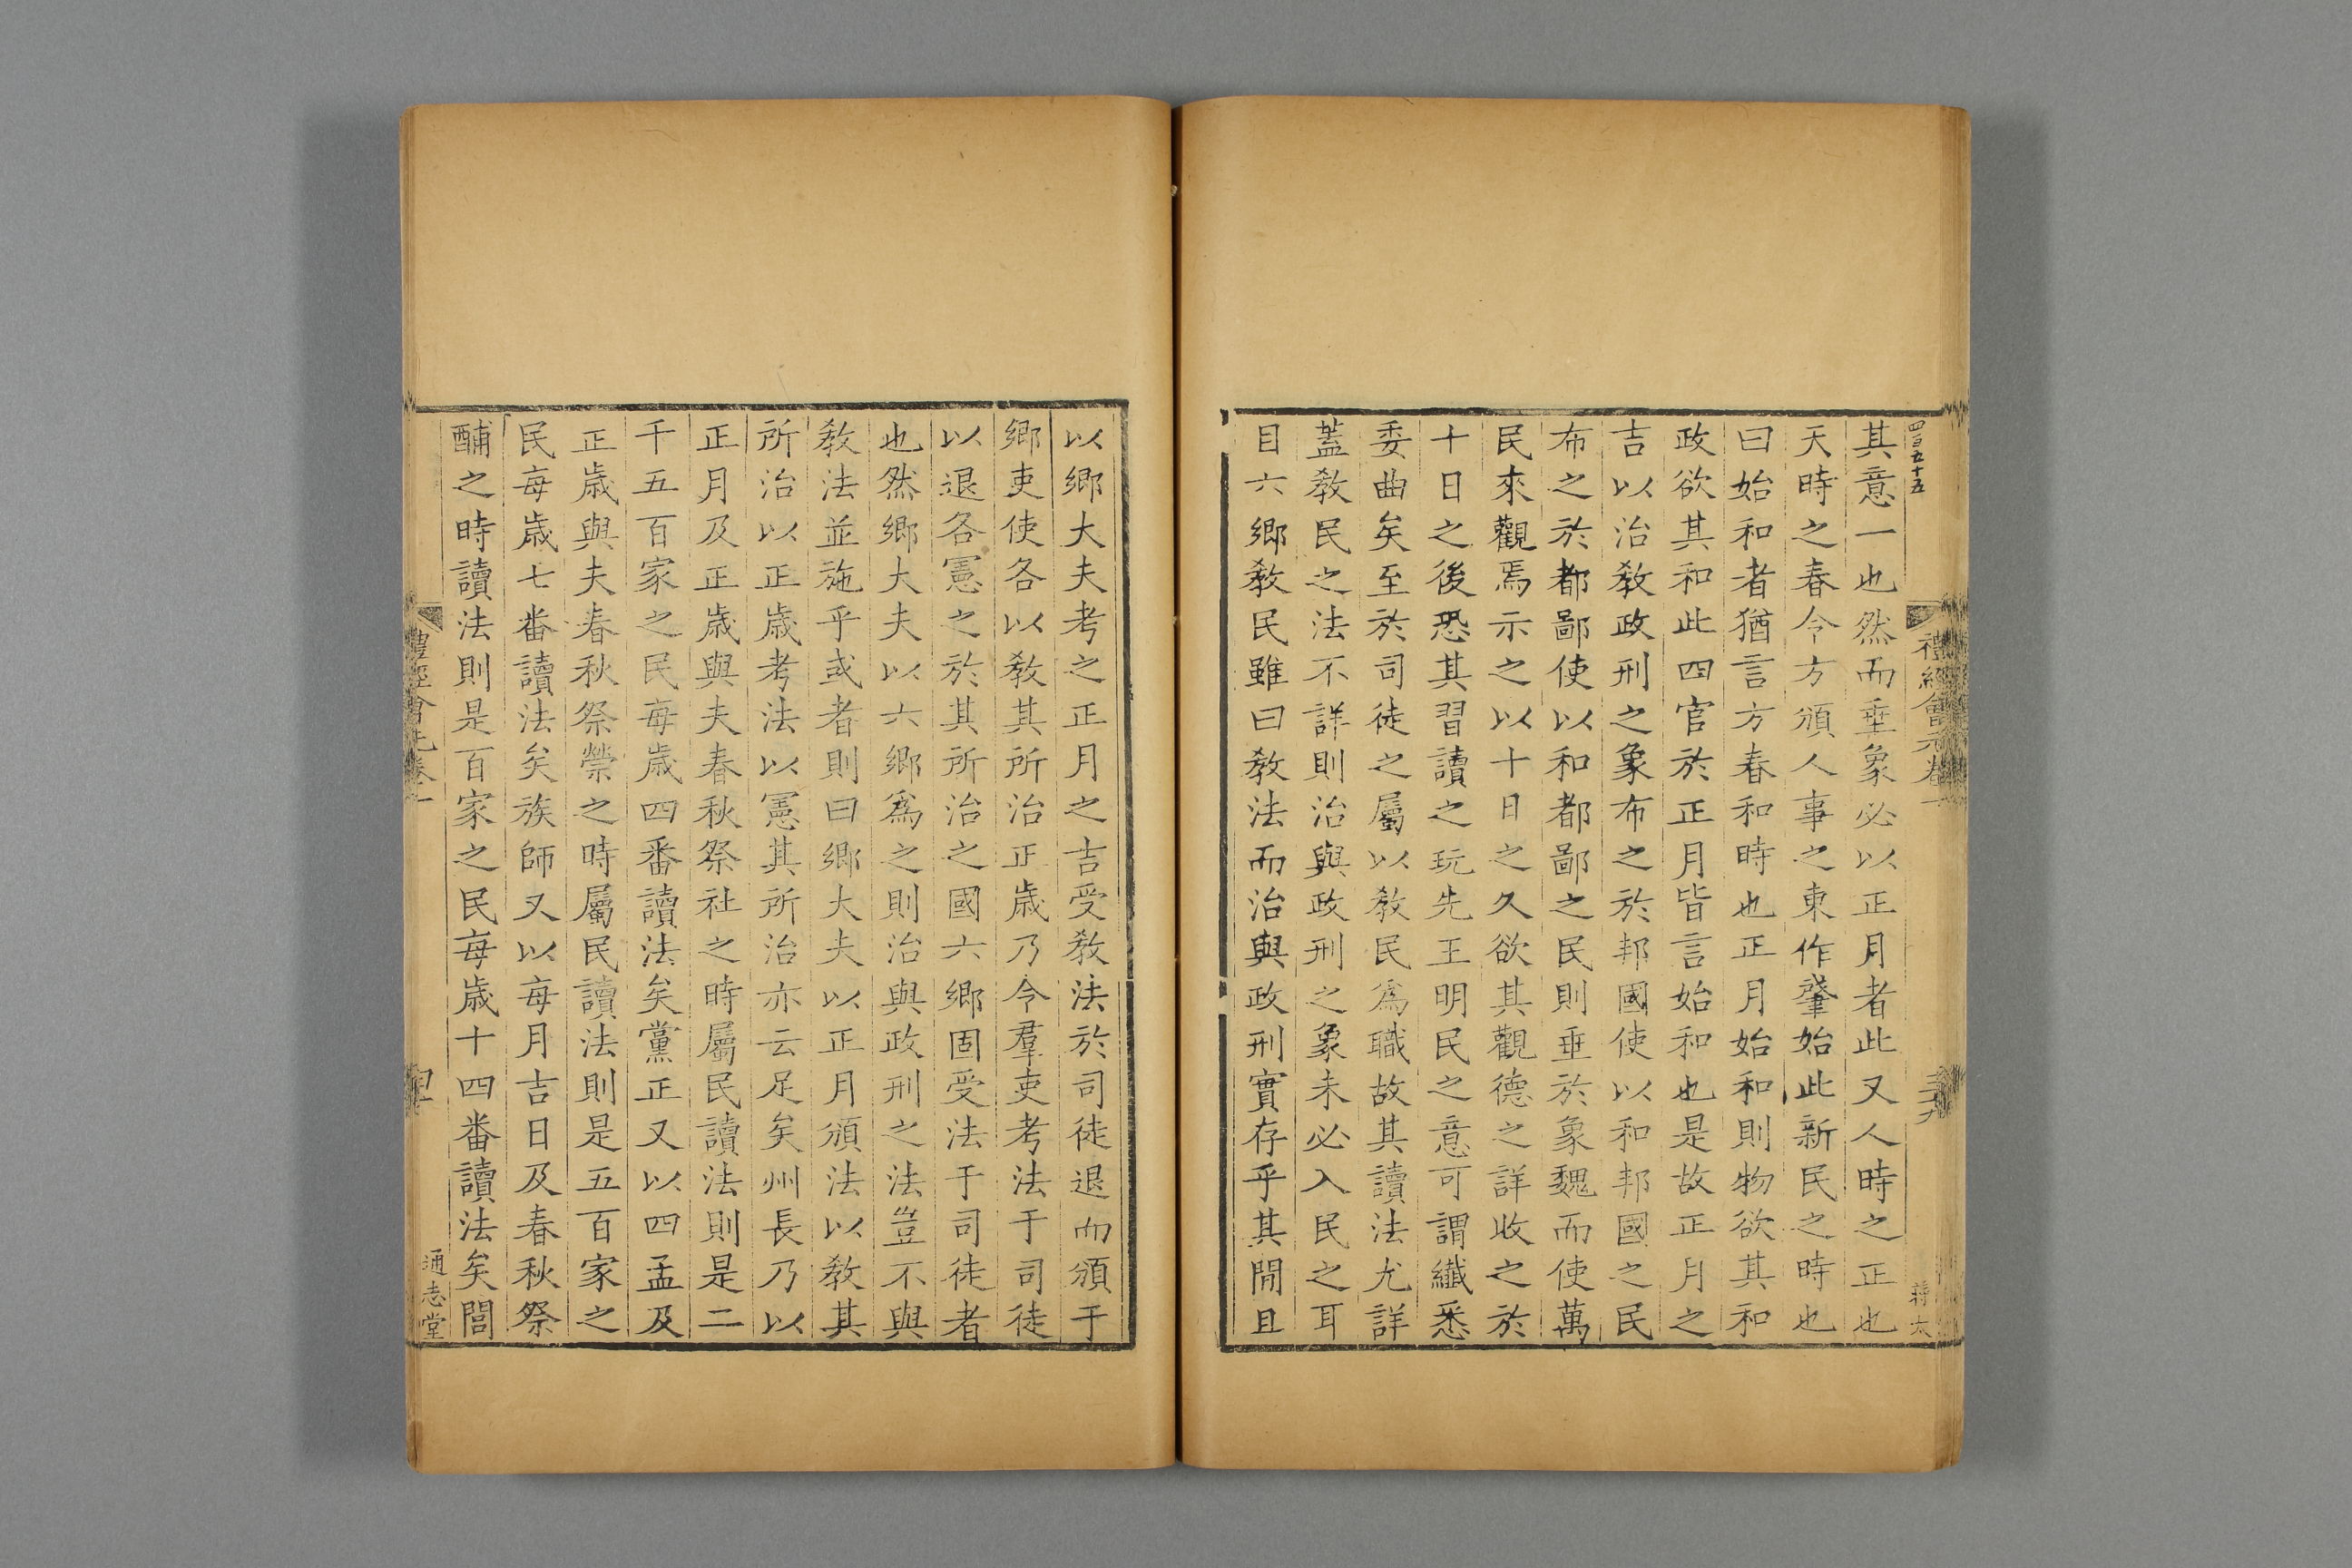 四百五十五
禮經會元卷一
三九
蔣太
其意一也然而垂象必以正月者此又人時之正也
天時之春令方頒人事之東作肇始此新民之時也
曰始和者猶言方春和時也正月始和則物欲其和
政欲其和此四官於正月皆言始和也是故正月之
吉以治敎政刑之象布之於邦國使以和邦國之民
布之於都鄙使以和都鄙之民則垂於象魏而使萬
民來觀焉示之以十日之久欲其觀德之詳收之於
十日之後恐其習讀之玩先王明民之意可謂纖悉
委曲矣至於司徒之屬以敎民爲職故其讀法尤詳
蓋敎民之法不詳則治與政刑之象未必入民之耳
目六鄉敎民雖曰敎法而治與政刑實存乎其閒且
以鄉大夫考之正月之吉受敎法於司徒退而頒于
鄉吏使各以敎其所治正歲乃令羣吏考法于司徒
以退各憲之於其所治之國六鄉固受法于司徒者
也然鄉大夫以六鄉爲之則治與政刑之法豈不與
敎法並施乎或者則曰鄉大夫以正月頒法以敎其
所治以正歲考法以憲其所治亦云足矣州長乃以
正月及正歲與夫春秋祭社之時屬民讀法則是二
千五百家之民每歲四番讀法矣黨正又以四孟及
正歲與夫春秋祭禜之時屬民讀法則是五百家之
民每歲七番讀法矣族師又以每月吉日及春秋祭
酺之時讀法則是百家之民每歲十四番讀法矣閭
禮經會元卷
通志堂